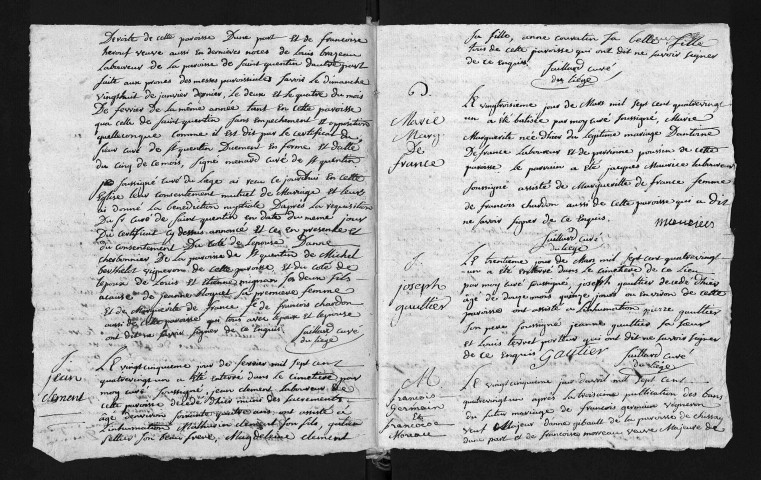 De reste de cette paroisse D'une part et de francoise
herout veuve aussi en dernieres noces de Louis brazeau
Laboureur de la paroisse de saint quentin d'autre part
faite aux prones des messes paroissiales savoir le dimanche
vingt huit de janvier dernier, le deux et le quatre du mois
De fevrier de la même année tant en cette paroisse
que celle de saint quentin sans empechement et opposition
quelleconque comme il est dit par le certificat du
sieur curé de st quentin Duement en forme et datté
du cinq de ce mois, signé menard curé de st quentin
je soussigné curé du Liege ai reçu ce jourdhui en cette
Eglise leur consentement mutuel de Mariage et leur
ai donné la benediction nuptiale D'après la requisition
Du Sr curé de saint quentin en datte du meme jour
Du certificat cy dessus annoncé et ce en presence et
du consentement Du coté de l'epouse D'anne
cherbonnier De la paroisse de St quentin de Michel
berthelot vigneron de cette paroisse et du coté de
l'epoux de Louis et etienne mignan ses deux fils,
a cause de jeanne Hoguet sa premiere femme
Et de Marguerite de france, de francois chardon
aussi de cette paroisse qui tous avec l'epoux et l'epouse
ont dit ne savoir signer de ce Enquis Saillard curé
du Liege
J.
jean
clement
LE vingt cinquieme jour de fevrier mil sept cent
quatrevingt un a été enterré dans le cimetiere par
moy curé soussigné, jean clement laboureur de
cette paroisse decedé d'hier muni des sacrements
agé d'environ soixante quatre ans ont assisté a
L'inhumation Mathurin clement son fils, quentin
sellier son beau frere, Magdeleine clement
sa fille, anne couratin sa belle fille
tous de cette paroisse qui ont dit ne savoir signer
de ce Enquis. Saillard curé
du Liege
Marie
Marg
De
france
LE vingt troisieme jour de Mars mil sept cent quatrevingt
un a été batisée par moy curé soussigné, Marie
Marguerite née d'hier du legitime mariage D'antoine
De france Laboureur et de perrinne poussin de cette
paroisse. le parrain a été jacques Maurice laboureur
soussigné assisté de Marguerite de france femme
de francois chardon aussi de cette paroisse qui a dit
ne savoir signer de ce Enquis.
Saillard curé
du Liege
J.
joseph
gaultier
LE trentieme jour de Mars mil sept cent quatrevingt
un a été enterré dans le cimetiere de ce Lieu
par moy curé soussigné, joseph gaultier decedé d'hier
agé de douze mois quinze jours ou environ de cette
paroisse ont assisté a l'inhumation pierre gaultier
son pere soussigné jeanne gaultier sa sœur
et Louis tervet portier qui ont dit ne savoir signer
de ce Enquis Gaultier Saillard curé
du Liege
M
francois
Germain
et
francoise
Moreau
LE vingt cinquieme jour d'avril mil sept cent
quatrevingt un après la troisieme publication des bans
du futur mariage de francois germain vigneron
veuf Majeur d'anne gibault de la paroisse de chissay
d'une part et de francoise morreau veuve Majeure de